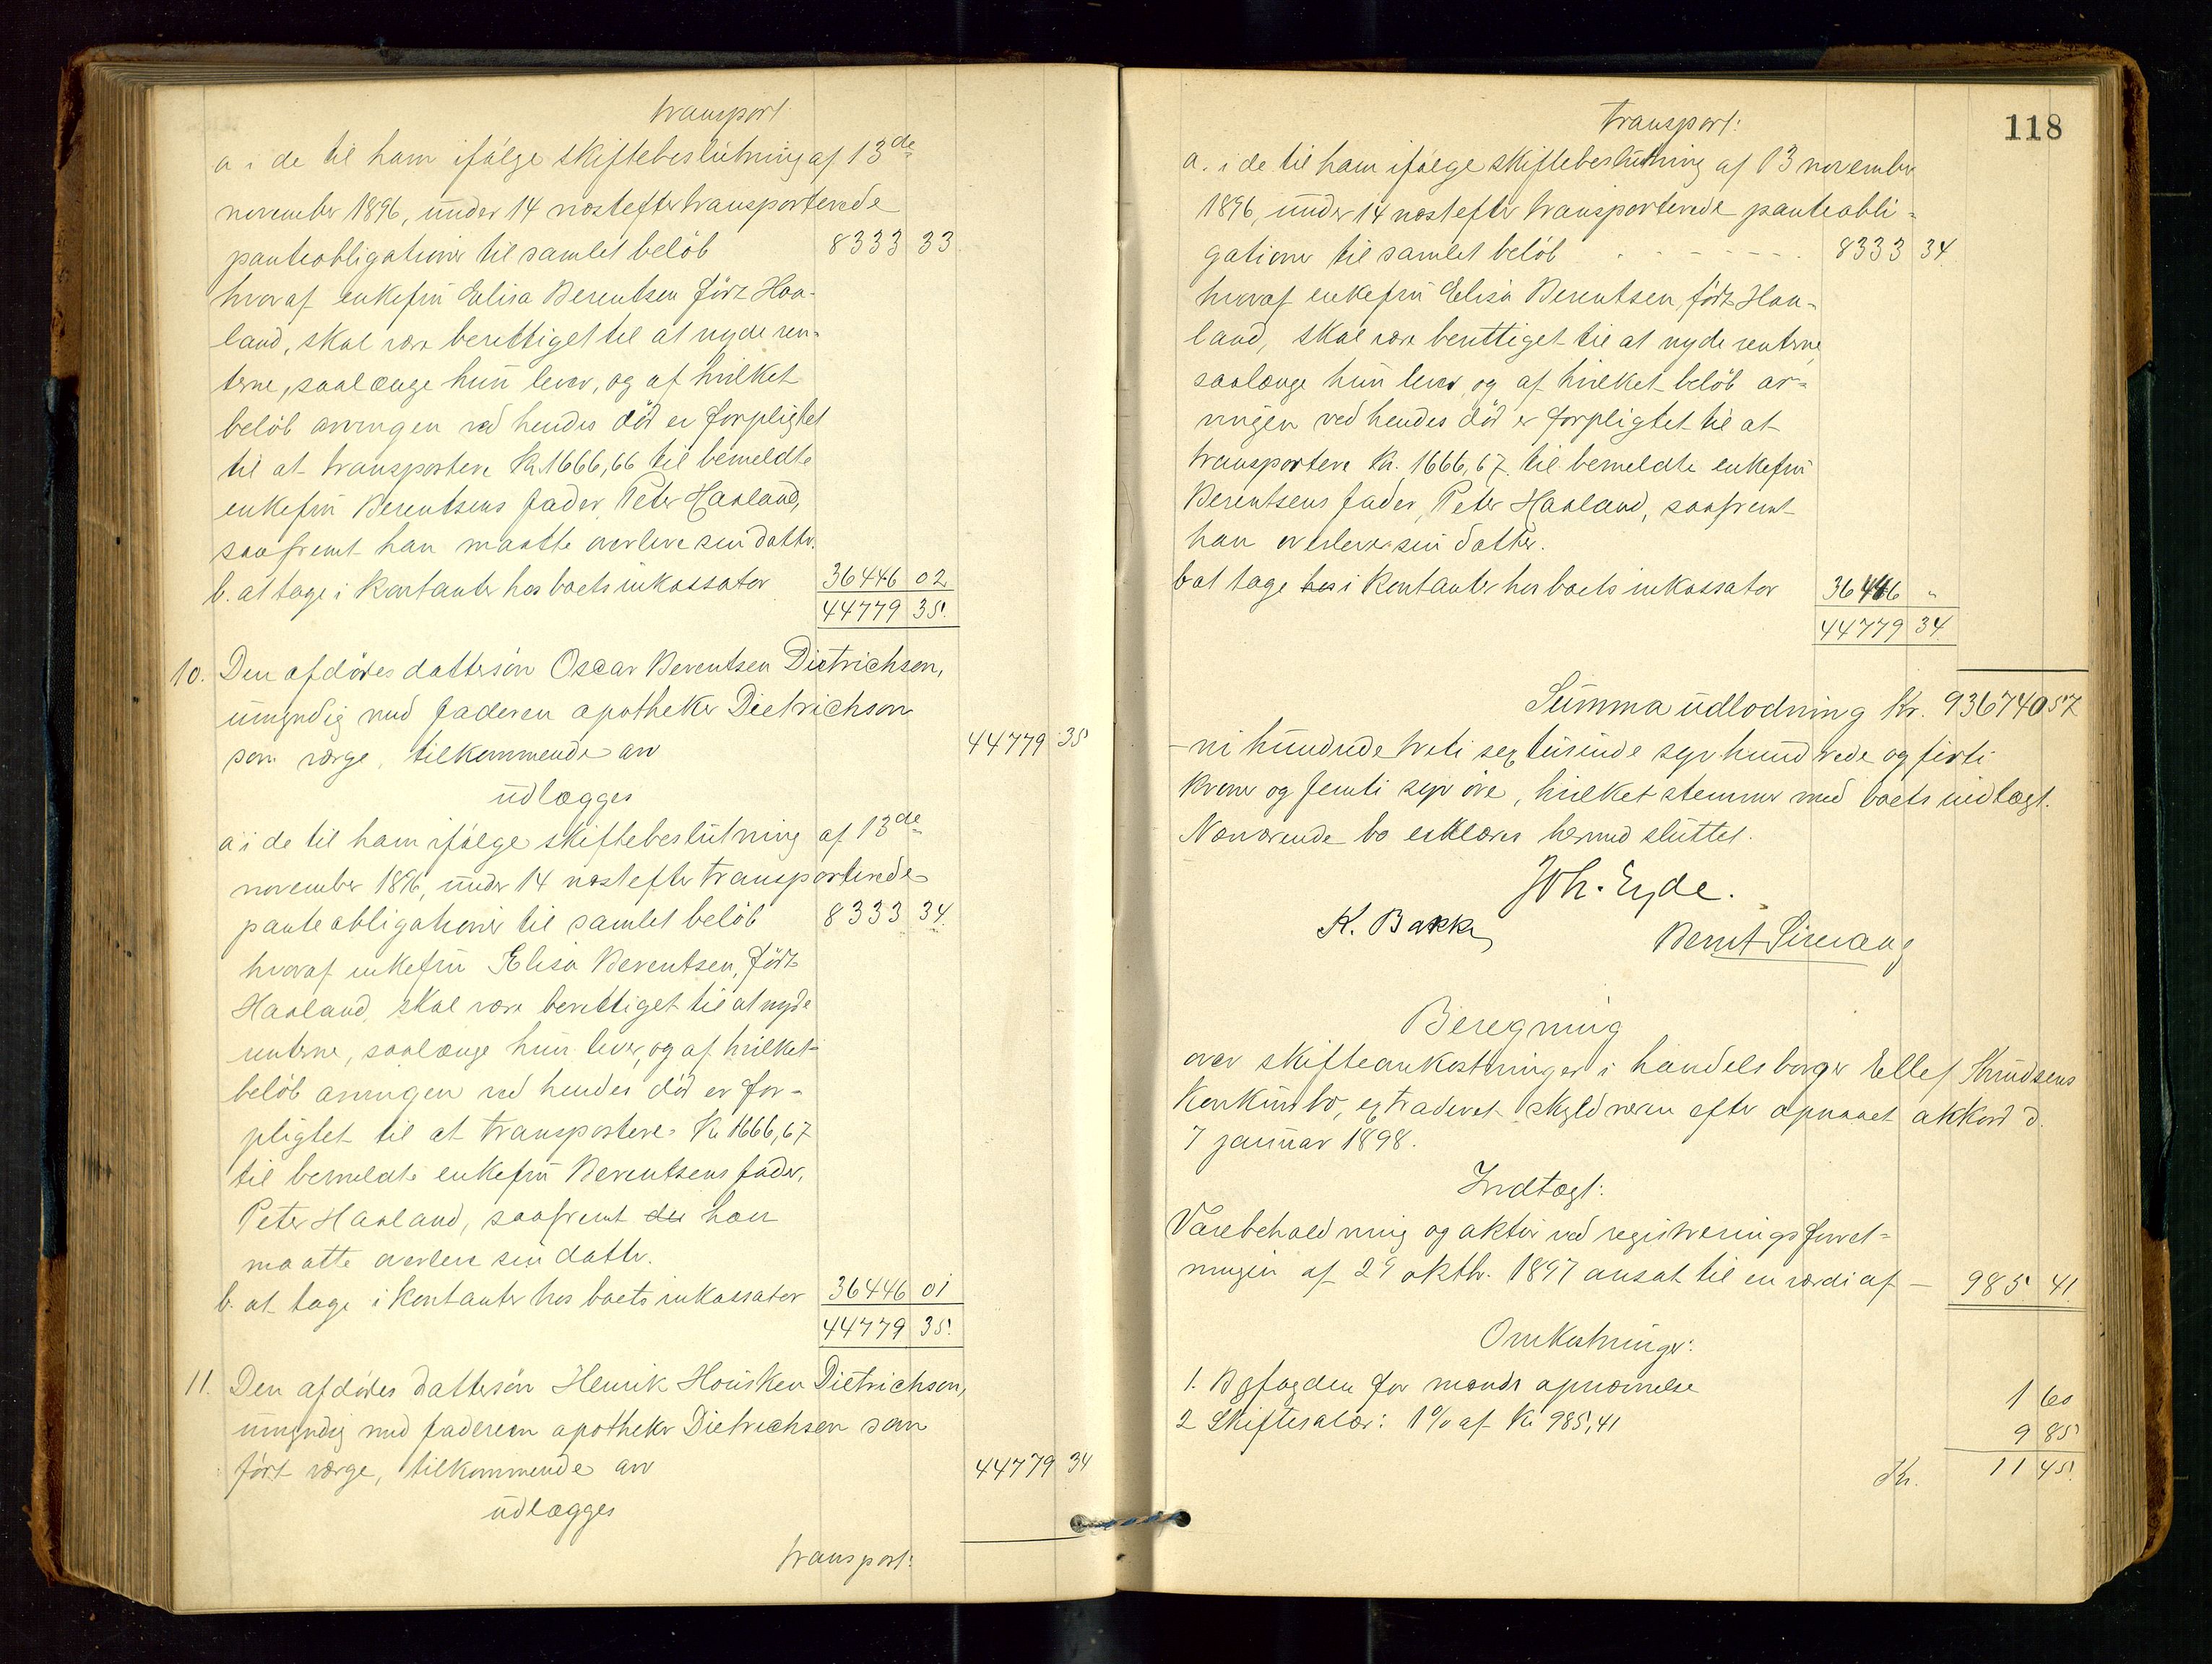 transport
a i de til ham ifølge skiftebeslutning af 13de
november 1896, under 14 næstefter transporterede
panteobligationer til samlet beløb 8333 33
hvoraf enkefru Elisa Berentsen født Haa-
land, skal være berettiget til at nyde ren-
terne, saalænge hun lever, og af hvilket
beløb arvingen ved hendes död er forpligtet
til at transportere Kr. 1666,66 til bemeldte
enkefru Berentsens fader, Peter Haaland,
saafremt han maatte overleve sin datter.
b. at tage i kontanter hos boets inkassator 36446 02
44779 35
10. Den afdödes dattersön Oscar Berentsen Dietrichson,
umyndig med faderen apotheker Dietrichson
som værge, tilkommende arv 44779 35
udlægges
a i de til ham ifölge skiftebeslutning af 13de
november 1896, under 14 næstefter transporterede
panteobligationer til samlet belöb 8333 34
hvoraf enkefru Elisa Berentsen, födt
Haaland, skal være berettiget til at nyde
renterne, saalænge hun lever, og af hvilket
belöb arvingen ved hendes död er for-
pligtet til at transportere Kr 1666,67
til bemeldte enkefru Berentsens fader,
Peter Haaland, saafremt han
maatte overleve sin datter.
b. at tage i kontanter hos boets inkassator 36446 01
44779 35
11. Den afdödes dattersön Henrik Housken Dietrichson,
umyndig med faderen apotheker Dietrichson som
født værge, tilkommende arv 44779 34
udlægges
transport:
118
transport:
a. i de til ham ifølge skiftebeslutning af 13 november
1896, under 14 næstefter transporterede panteobli-
gationer til samlet belöb 8333 34
hvoraf enkefru Elisa Berentsen, født Haa-
land, skal være berettiget til at nyde renterne,
saalænge hun lever, og af hvilket belöb ar-
vingen ved hendes död er forpligtet til at
transportere Kr. 1666,67 til bemeldte enkefru
Berentsens fader, Peter Haaland, saafremt
han overlever sin datter.
b at tage hos i kontanter hos boets inkassator 36446 "
44779 34
Summa udlodning Kr. 936740 57
- ni hundrede treti sex tusinde syv hundrede og firti
kroner og femti syv øre, hvilket stemmer med boets indtægt.
Nærværende bo erklæres hermed sluttet.
Joh. Eyde.
K. Bakke
Bernt
Beregning
over skifteomkostninger i handelsborger Ellef Knudsens
Konkursbo, extraderet skyldneren efter opnaaet akkord d.
7 januar 1898.
Indtægt:
Varebehaldning og aktiv ved registreringsforret-
ningen af 29 oktbr. 1897 ansat til en værdi af — 985 41
Omkostninger:
1. Byfogden for mænds opnævnelse 1 60
2 Skiftesalær: 1% af Kr 985,41 9 85
Kr. 11 45